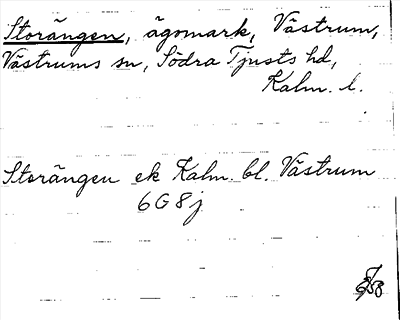 Storängen, ägomark, Västrum,
Västrums sn, Södra Tjusts hd,
Kalm. l.
Storängen ek Kalm. bl. Västrum
6G8j